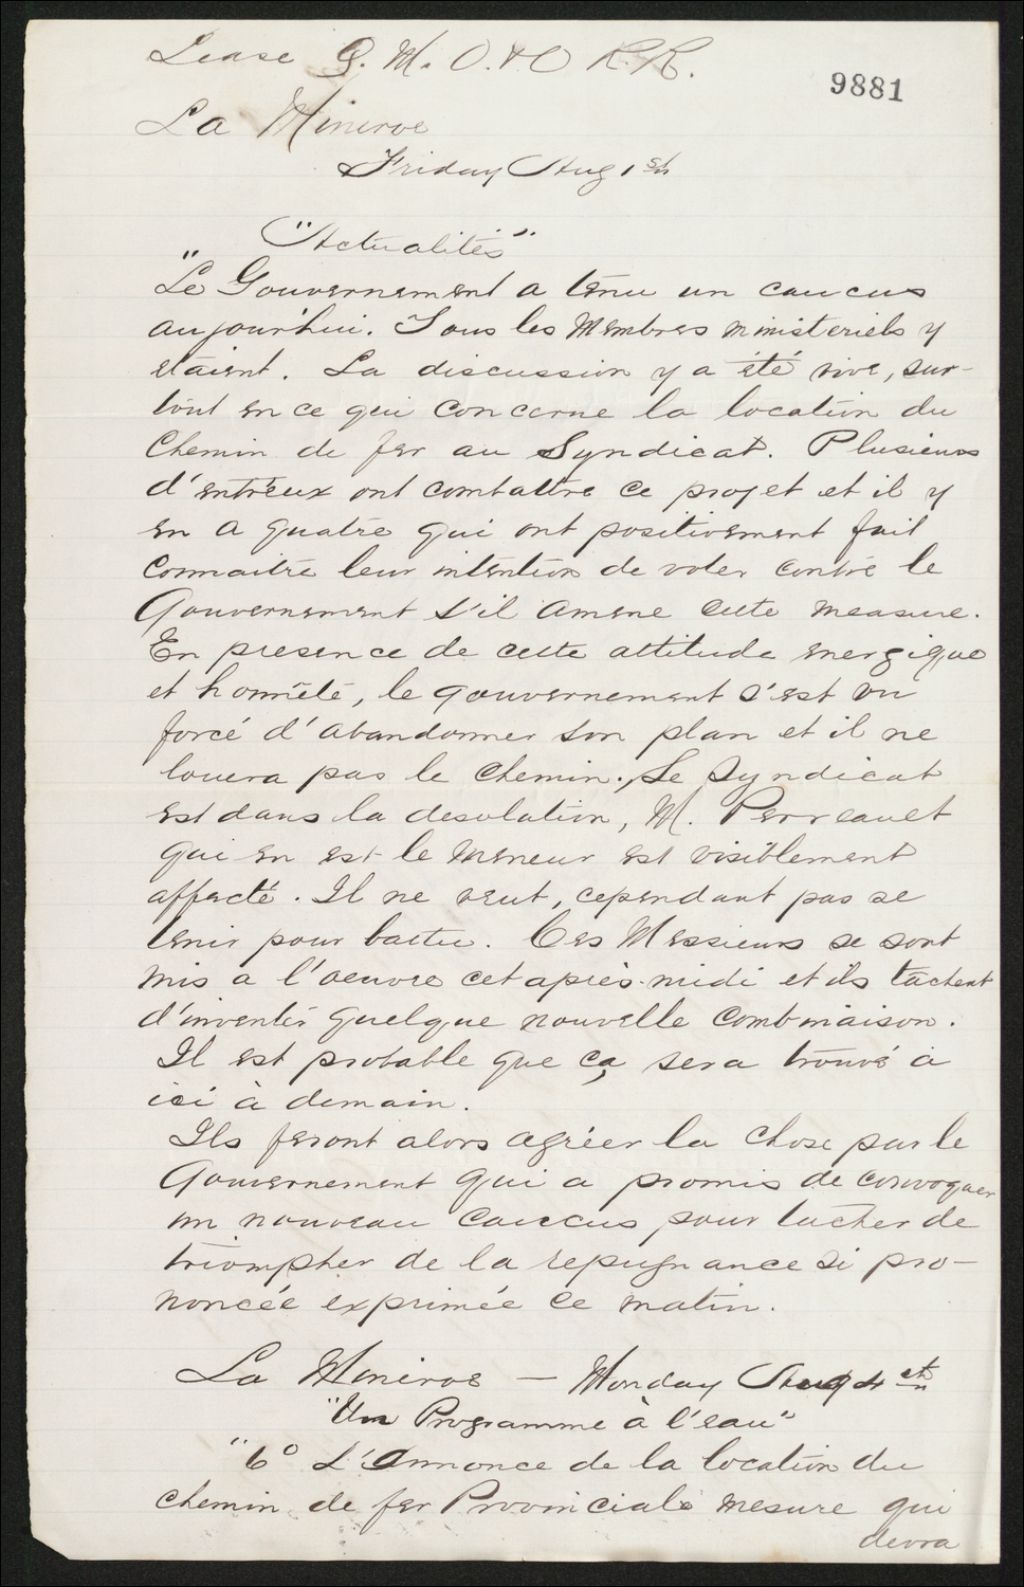 Lease Q. M. O. & O R. R.
9881
La Minerve
Friday Aug 1st
"Actualités"
"Le Gouvernement a tenu un caucus
aujourhui. Tous les Membres ministeriels y
etaient. La discussion y a été vive, sur-
tout en ce qui concerne la location du
Chemin de fer au Syndicat. Plusieurs
d'entreux ont combattre ce projet et il y
en a quatre qui ont positivement fait
connaitre leur intention de voter contre le
Gouvernement s'il amene cette measure.
En presence de cette attitude energique
et honnêté, le gouvernement s'est vu
forcé d'abandonner son plan et il ne
louera pas le chemin. Le Syndicat
est dans la desolation, M. Perreault
qui en est le meneur est visiblement
affecté. Il ne veut, cependant pas se
tenir pour battu. Ces Messieurs se sont
mis a l'oeuvre cet après-midi et ils tâchent
d'inventer quelque nouvelle combinaison.
Il est probable que ça sera trouvé à
ici à demain.
Ils feront alors agréer la chose par le
Gouvernement qui a promis de convoquer
un nouveau caucus pour tacher de
triompher de la repugnance si pro-
noncée exprimée ce matin.
La Minerve — Monday Aug 4th
"Un Programme à l'eau"
"6° L'Annonce de la location du
chemin de fer Provinciale mesure qui
devra